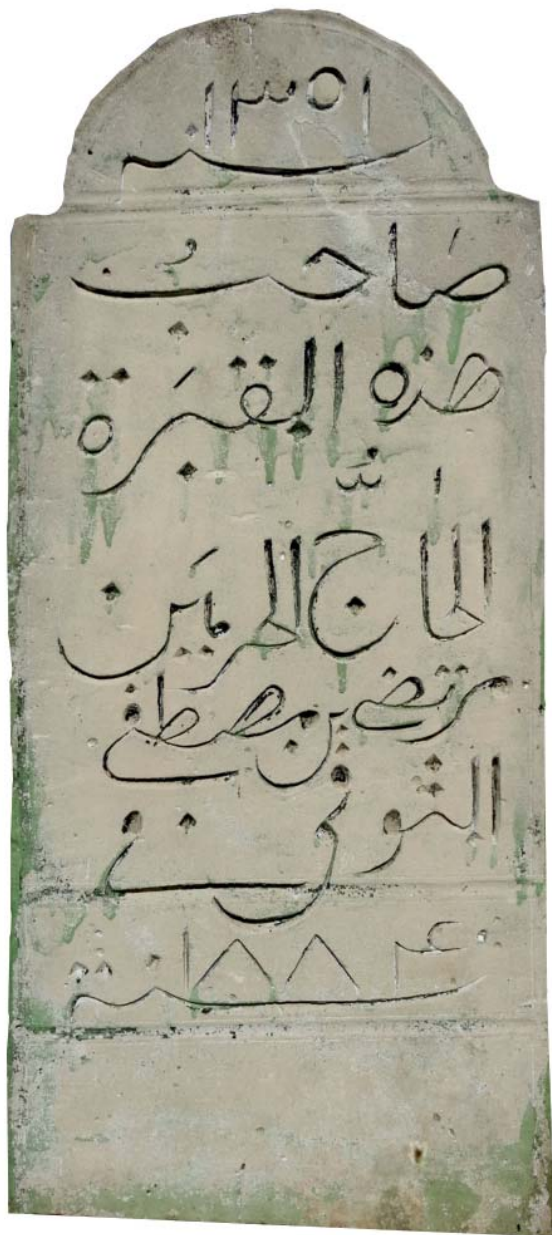 ١٣٥١
سنة
صَاحبُ
هذه المقبَرة
الحاجّ الحرمَين
مرتضى بن مصطفى
المتوفى في
١٨٨٤
سنة